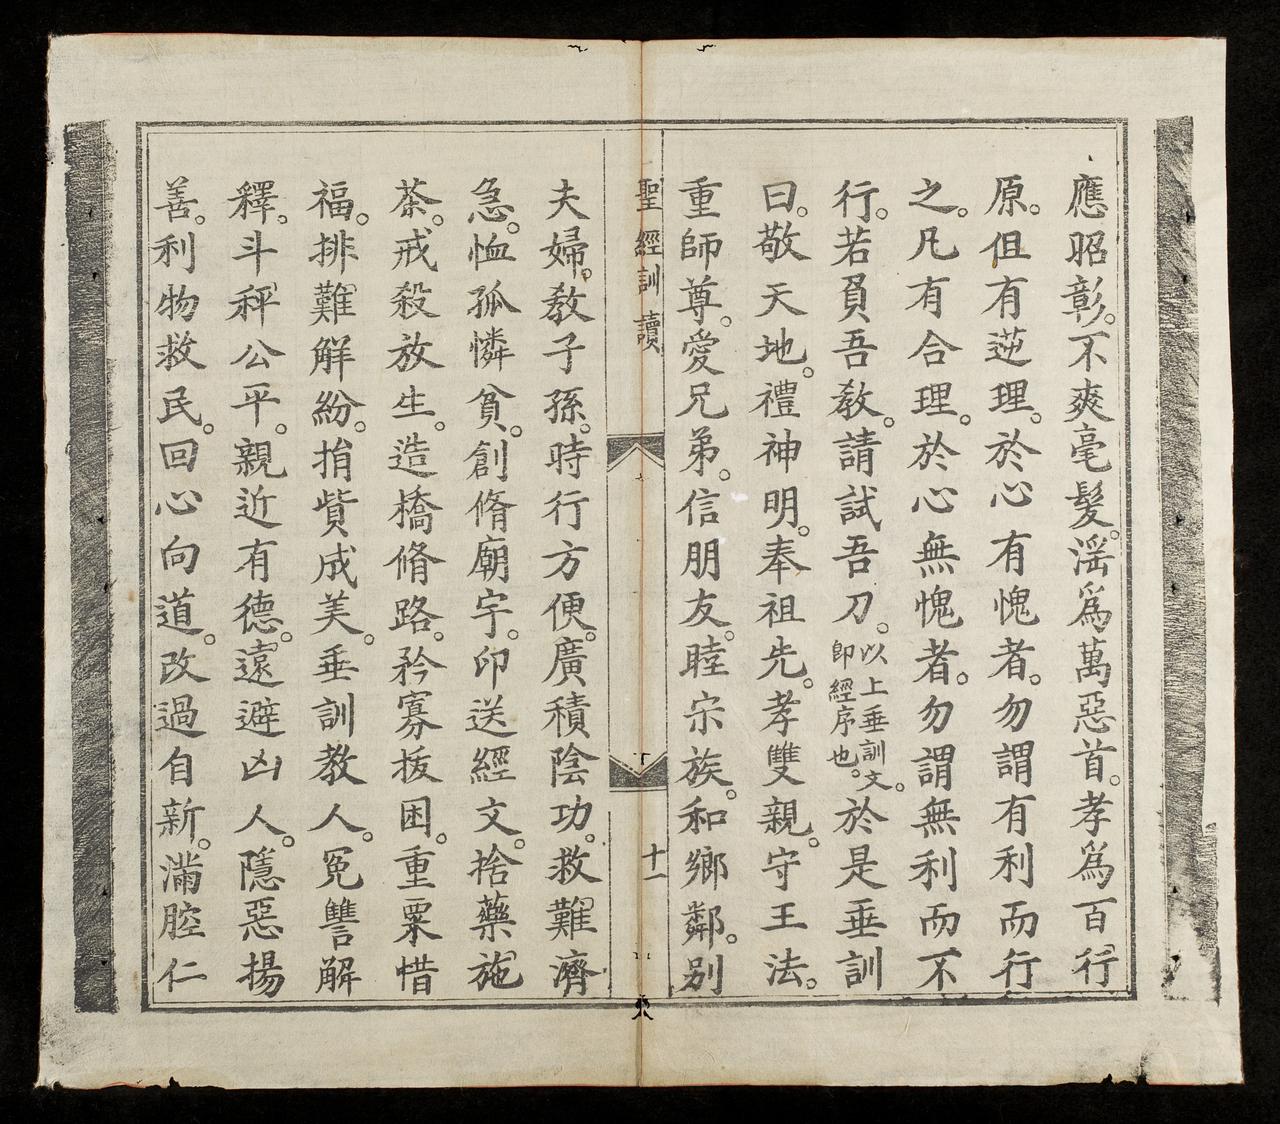 應昭彰。不爽毫髮。淫爲萬惡首。孝爲百行
原。但有逆理。於心有愧者。勿謂有利而行
之。凡有合理。於心無愧者。勿謂無利而不
行。若負吾敎。請試吾刀。以上垂訓文。即經序也。於是垂訓
曰。敬天地。禮神明。奉祖先。孝雙親。守王法。
重師尊。愛兄弟。信朋友。睦宗族。和鄉鄰。別
聖經訓讀
十一
夫婦。敎子孫。時行方便。廣積陰功。救難濟
急。恤孤憐貧。創脩廟宇。印送經文。捨藥施
茶。戒殺放生。造橋脩路。矜寡拔困。重粟惜
福。排難解紛。捐貲成美。垂訓教人。冤讐解
釋。斗秤公平。親近有德。遠避凶人。隱惡揚
善。利物救民。回心向道。改過自新。滿腔仁